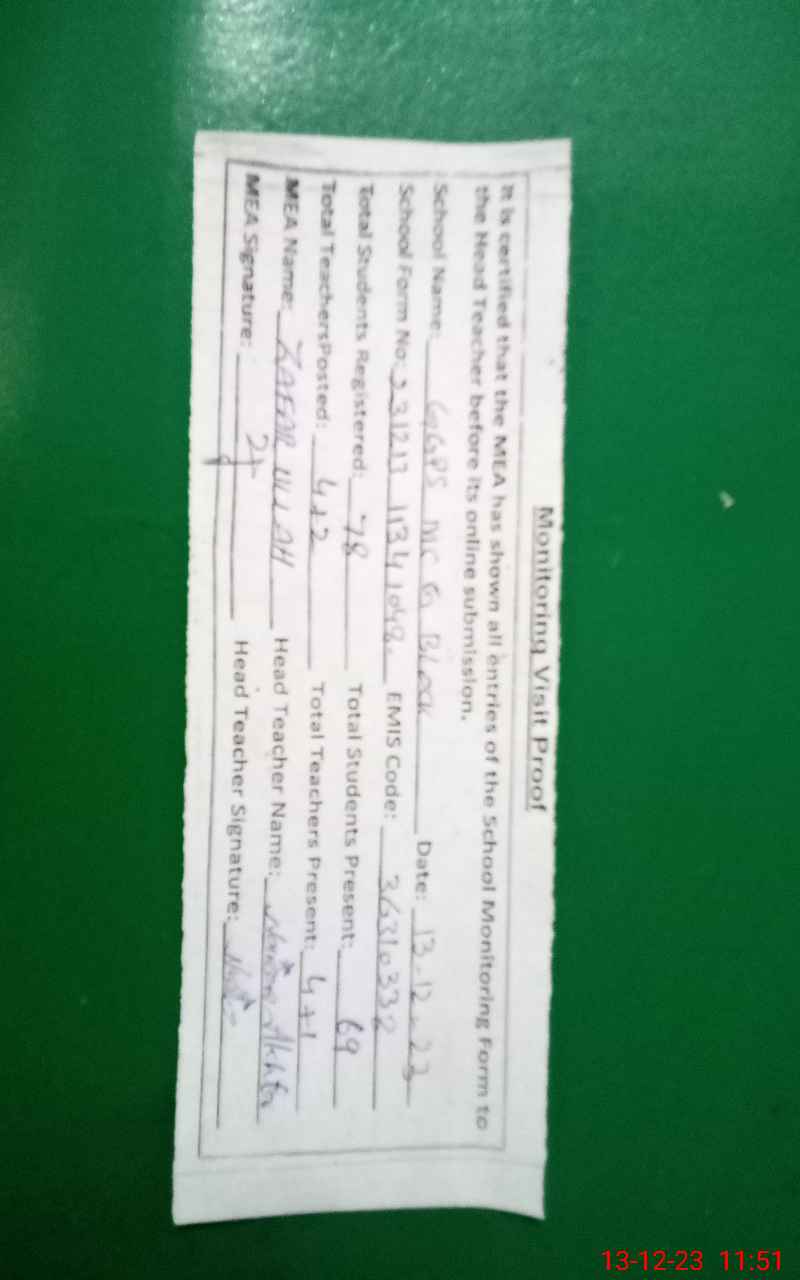 Monitoring Visit Proof
It is certified that the MEA has shown all entries of the School Monitoring Form to
the Head Teacher before its online submission.
School Name: GGPS MC G Block Date: 13-12-23
School Form No: 231213 11341048 EMIS Code: 36310332
Total Students Registered: 78 Total Students Present: 69
Total TeachersPosted: 4+2 Total Teachers Present: 4+1
MEA Name: ZAFAR ULLAH Head Teacher Name: Akhtar
MEA Signature: Head Teacher Signature:
13-12-23 11:51